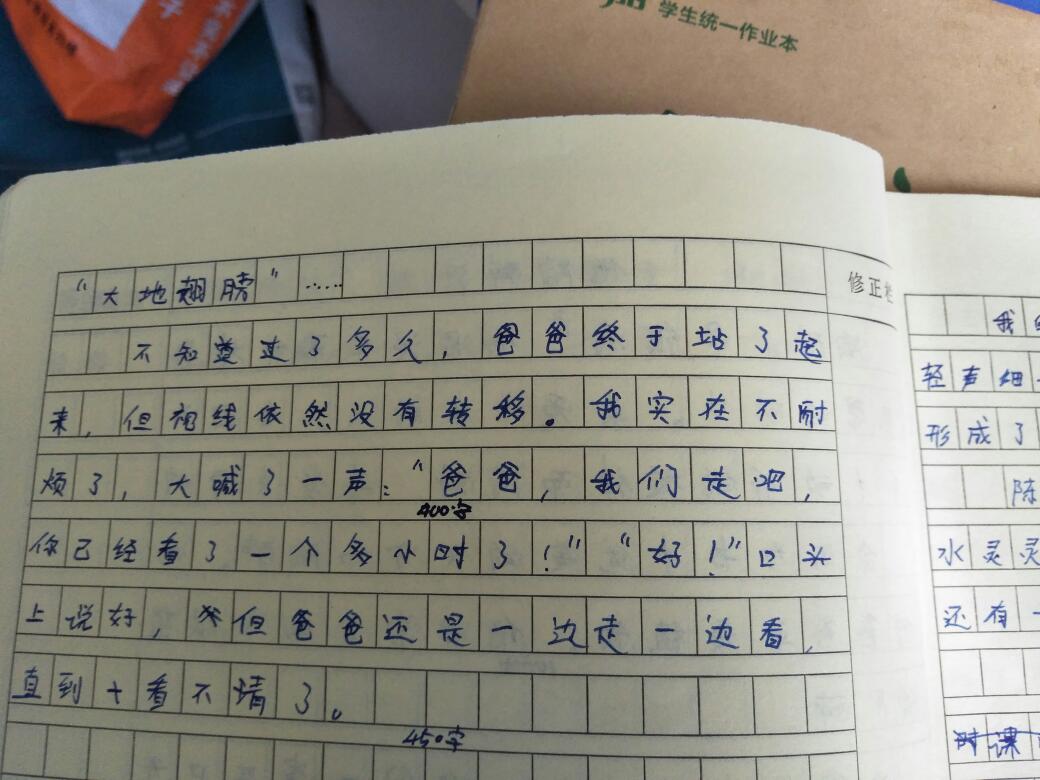 学生统一作业本
“大地翅膀”……
不知道过了多久，爸爸终于站了起
来，但视线依然没有转移。我实在不耐
烦了，大喊了一声：“爸爸，我们走吧，
400字
你已经看了一个多小时了！”“好！”口头
上说好，但爸爸还是一边走一边看，
直到十看不清了。
450字
修正栏
我
轻声细
形成了
陈
水灵灵
还有一
时课